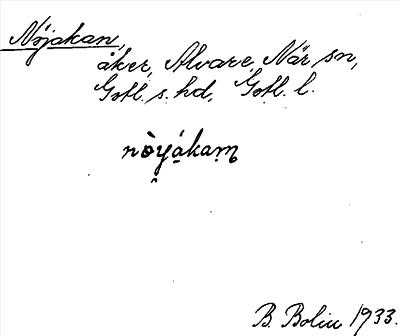 Nöjakan,
åker, Alvare, När sn,
Gotl. s. hd, Gotl. l.
nòyákam
B. Bolin 1933.